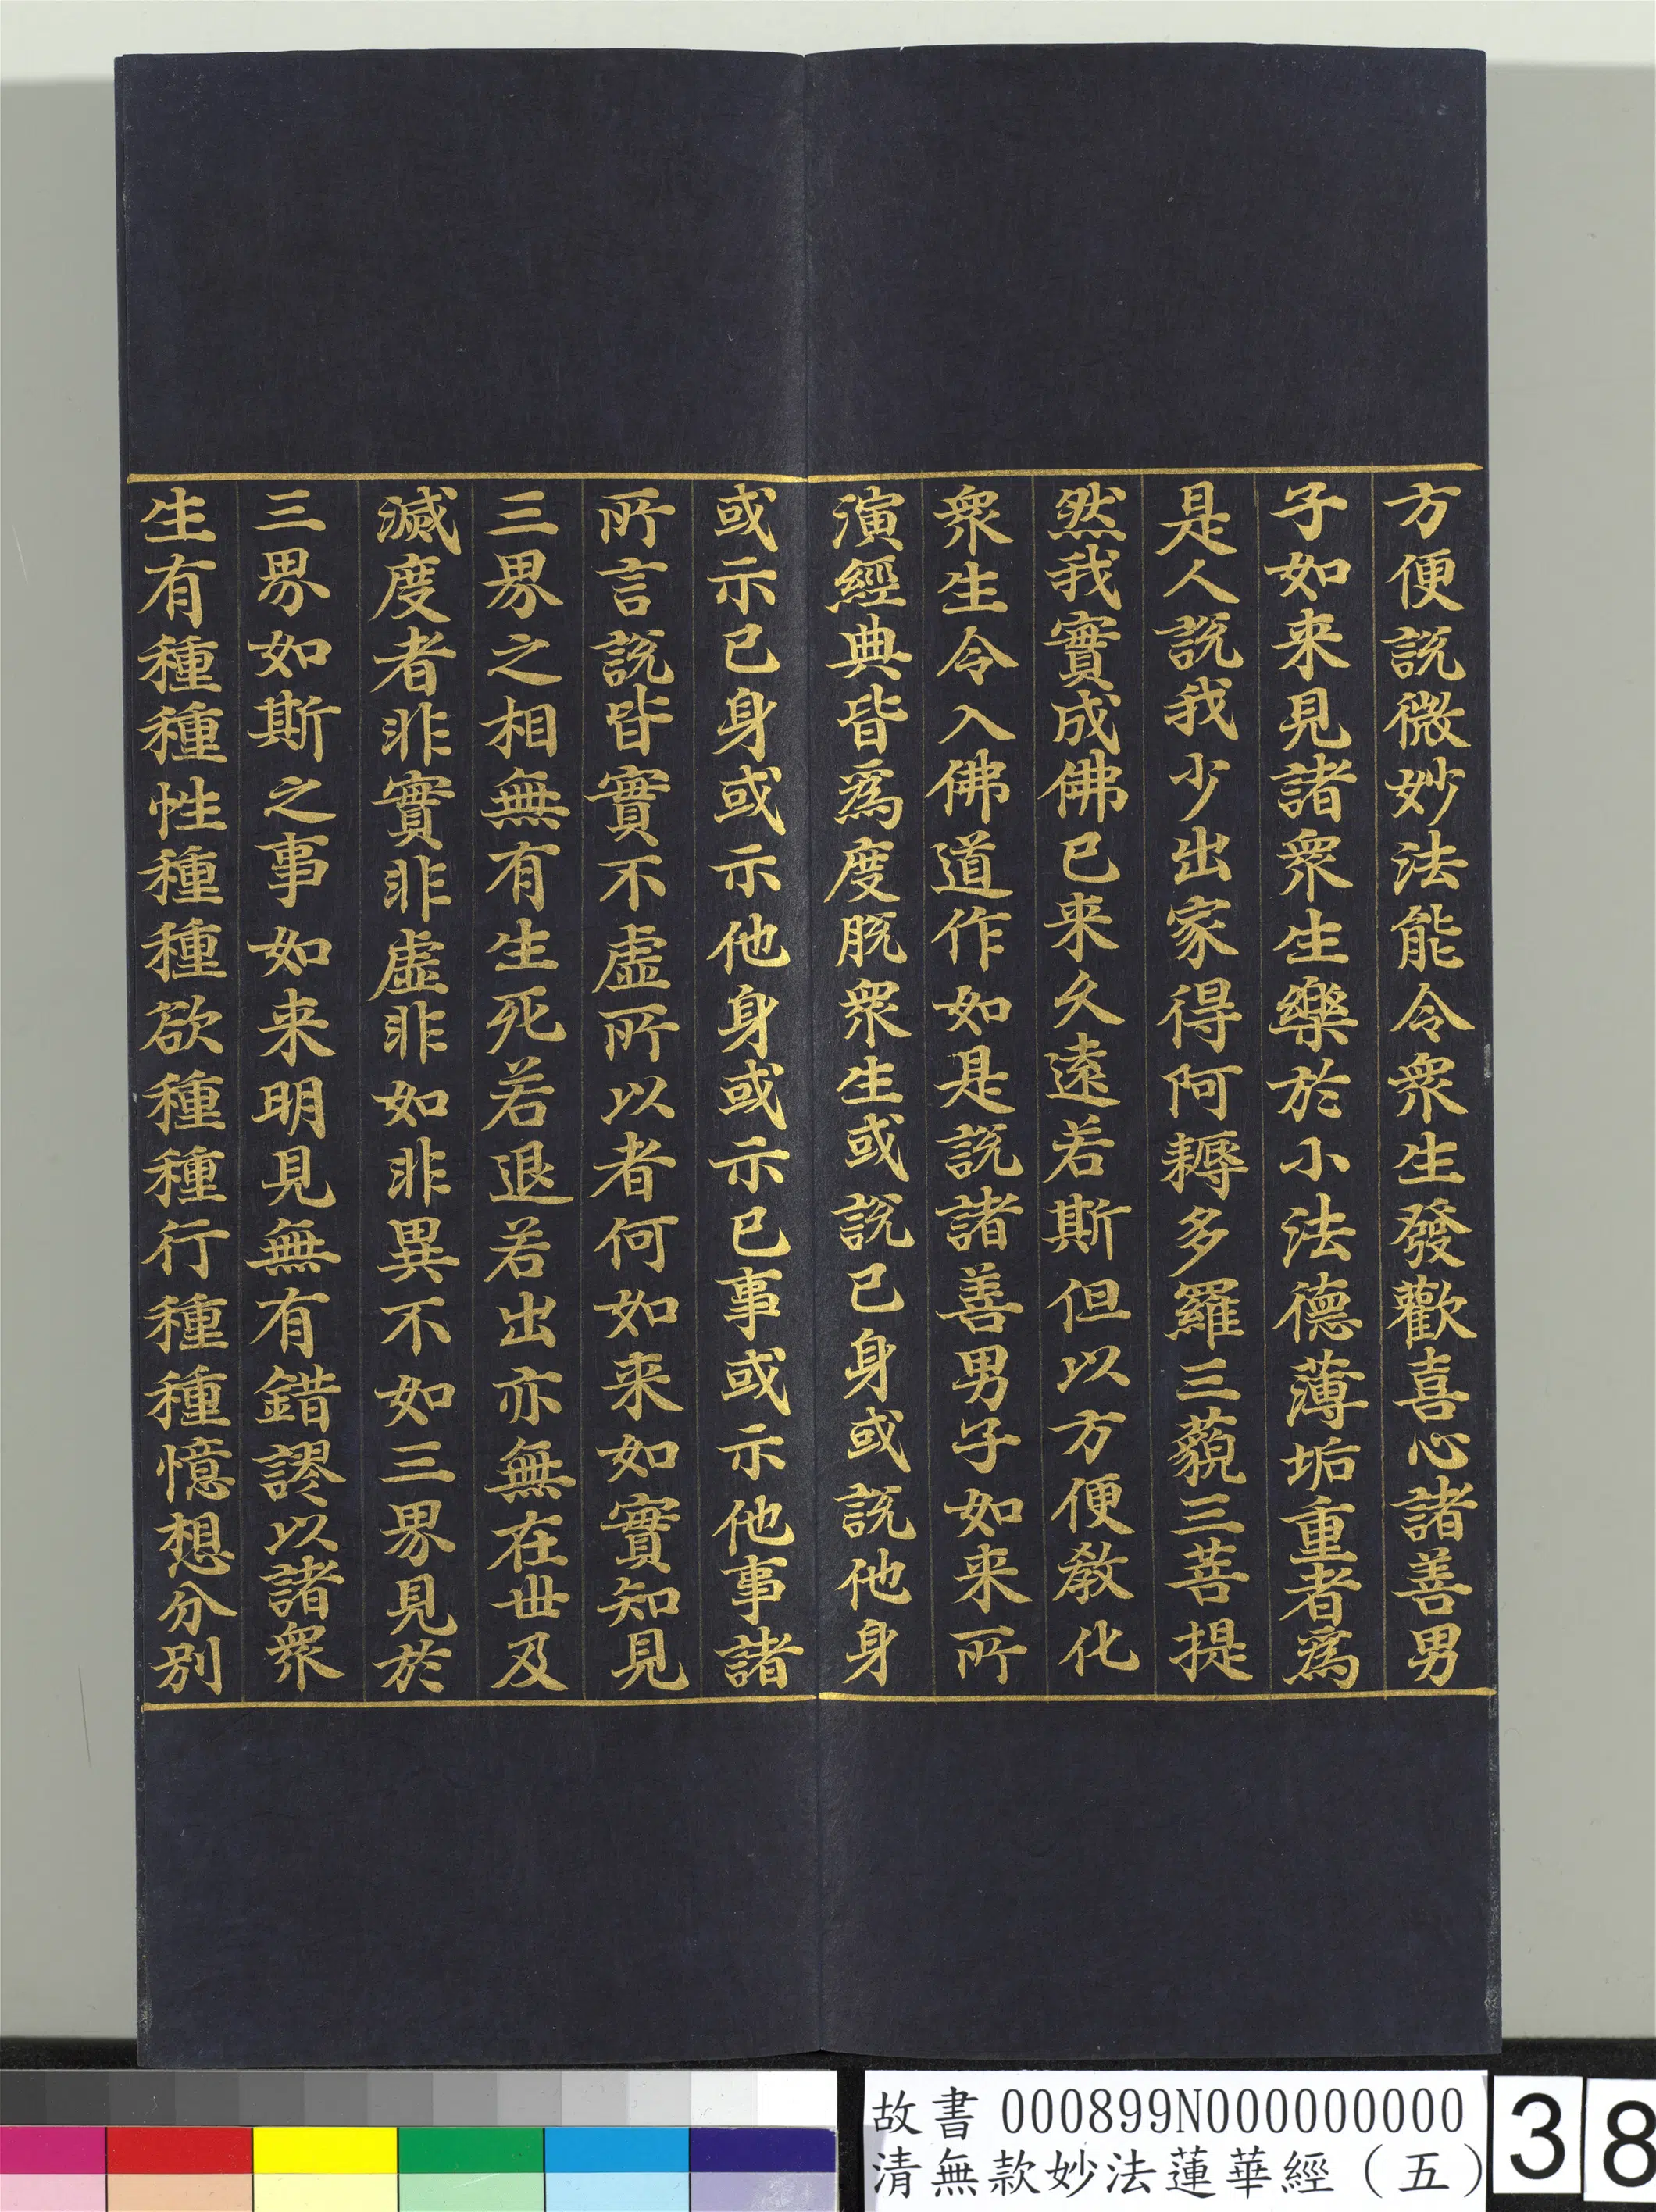 方便説微妙法能令衆生發歡喜心諸善男
子如来見諸衆生樂於小法德薄垢重者爲
是人説我少出家得阿耨多羅三藐三菩提
然我實成佛已来久遠若斯但以方便教化
衆生令入佛道作如是説諸善男子如来所
演經典皆爲度脱衆生或説已身或説他身
或示已身或示他身或示已事或示他事諸
所言説皆實不虚所以者何如来如實知見
三界之相無有生死若退若出亦無在世及
滅度者非實非虚非如非異不如三界見於
三界如斯之事如来明見無有錯謬以諸衆
生有種種性種種欲種種行種種憶想分別
故書 000899N000000000
清無款妙法蓮華經（五）
38